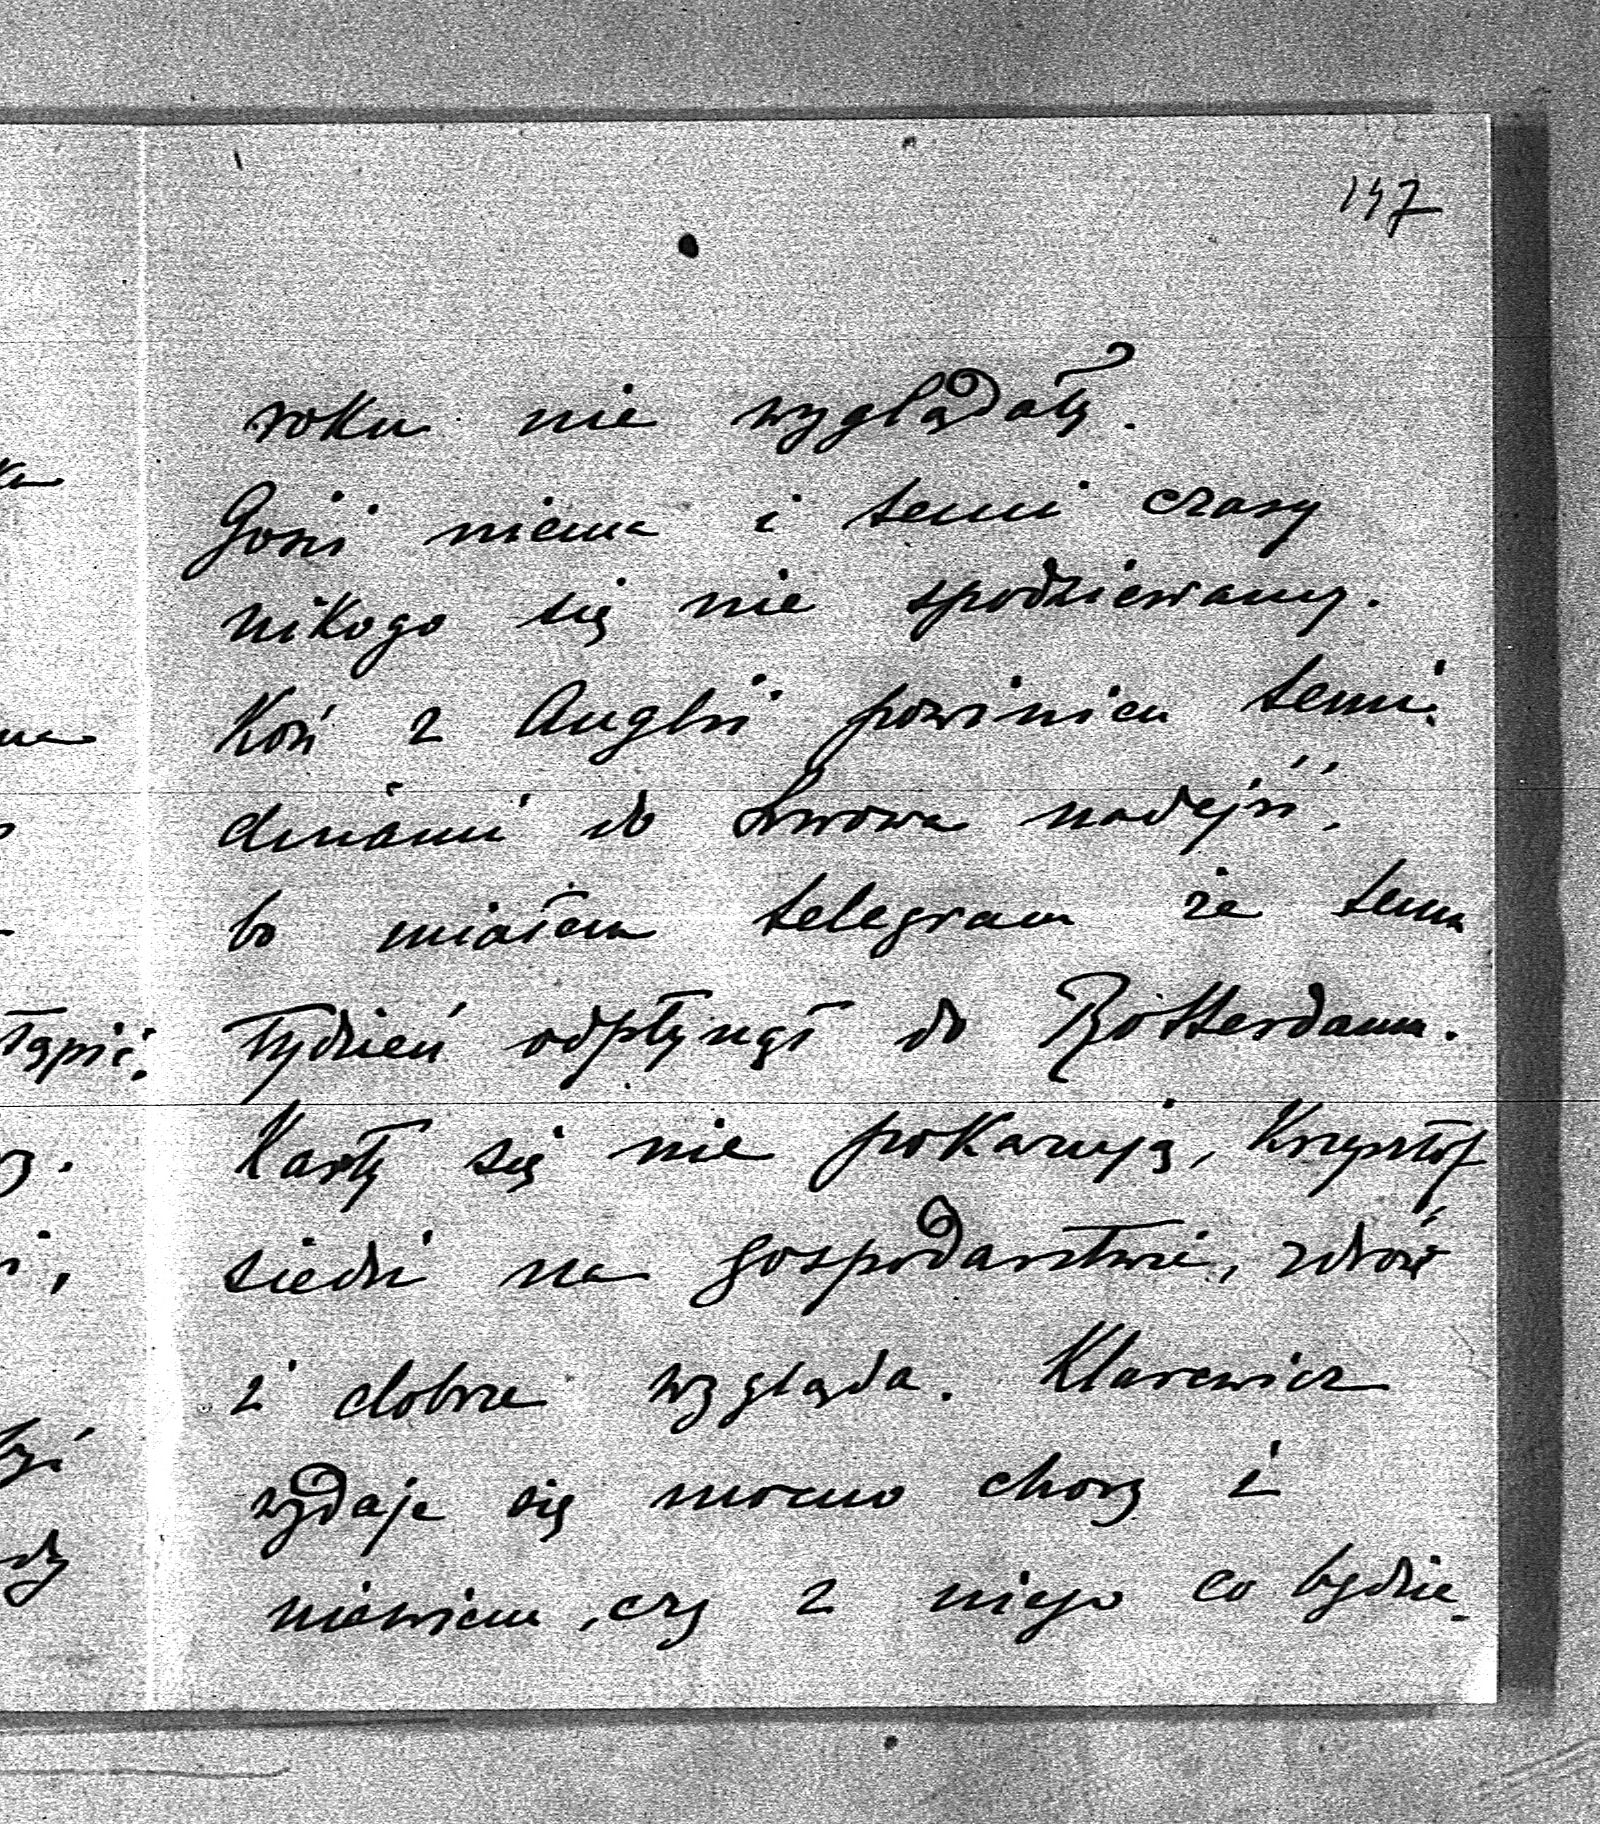 147
roku nie wyglądały.
Gości niema i temi czasy
nikogo się nie spodziewamy.
Koń z Anglii powinien temi
dniami do Lwowa nadejść,
bo miałem telegram że temu
tydzień odpłynął do Rotterdamu.
Karły się nie pokazują, Krzysztof
siedzi na gospodarstwie, zdrów
i dobrze wygląda. Klarewicz
wydaje się mocno chory i
niewiem, czy z niego co będzie